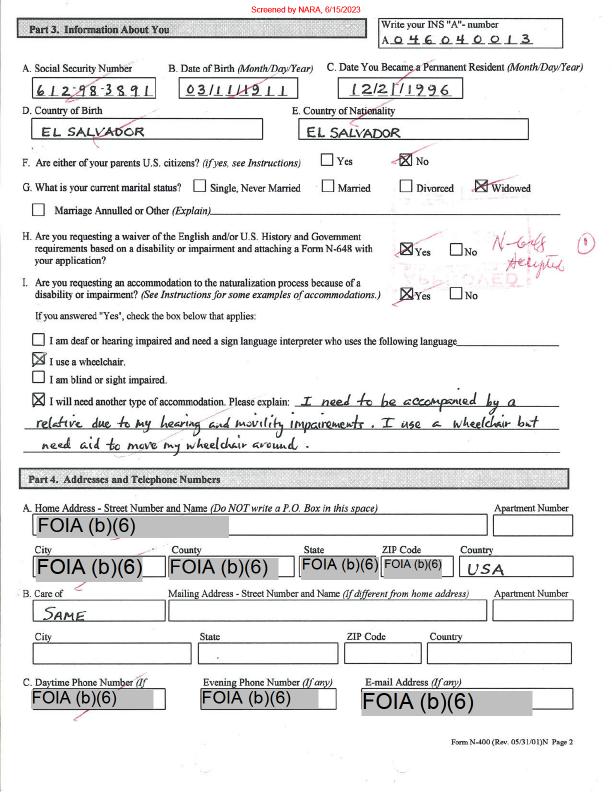 Screened by NARA, 6/15/2023
Part 3. Information About You
Write your INS "A"- number
A 046040013
A. Social Security Number
B. Date of Birth (Month/Day/Year)
C. Date You Became a Permanent Resident (Month/Day/Year)
612-98-3891
03/11/1911
12/21/1996
D. Country of Birth
E. Country of Nationality
EL SALVADOR
EL SALVADOR
F. Are either of your parents U.S. citizens? (if yes, see Instructions)
Yes
No
G. What is your current marital status?
Single, Never Married
Married
Divorced
Widowed
Marriage Annulled or Other (Explain)
H. Are you requesting a waiver of the English and/or U.S. History and Government
requirements based on a disability or impairment and attaching a Form N-648 with
your application?
Yes
No
N-648
Accepted
I. Are you requesting an accommodation to the naturalization process because of a
disability or impairment? (See Instructions for some examples of accommodations.)
Yes
No
If you answered "Yes", check the box below that applies:
I am deaf or hearing impaired and need a sign language interpreter who uses the following language
I use a wheelchair.
I am blind or sight impaired.
I will need another type of accommodation. Please explain: I need to be accompanied by a
relative due to my hearing and movility impairements. I use a wheelchair but
need aid to move my wheelchair around.
Part 4. Addresses and Telephone Numbers
A. Home Address - Street Number and Name (Do NOT write a P.O. Box in this space)
Apartment Number
FOIA (b)(6)
City
County
State
ZIP Code
Country
FOIA (b)(6)
FOIA (b)(6)
FOIA (b)(6)
FOIA (b)(6)
USA
B. Care of
Mailing Address - Street Number and Name (If different from home address)
Apartment Number
SAME
City
State
ZIP Code
Country
C. Daytime Phone Number (If
Evening Phone Number (If any)
E-mail Address (If any)
FOIA (b)(6)
FOIA (b)(6)
FOIA (b)(6)
Form N-400 (Rev. 05/31/01)N Page 2